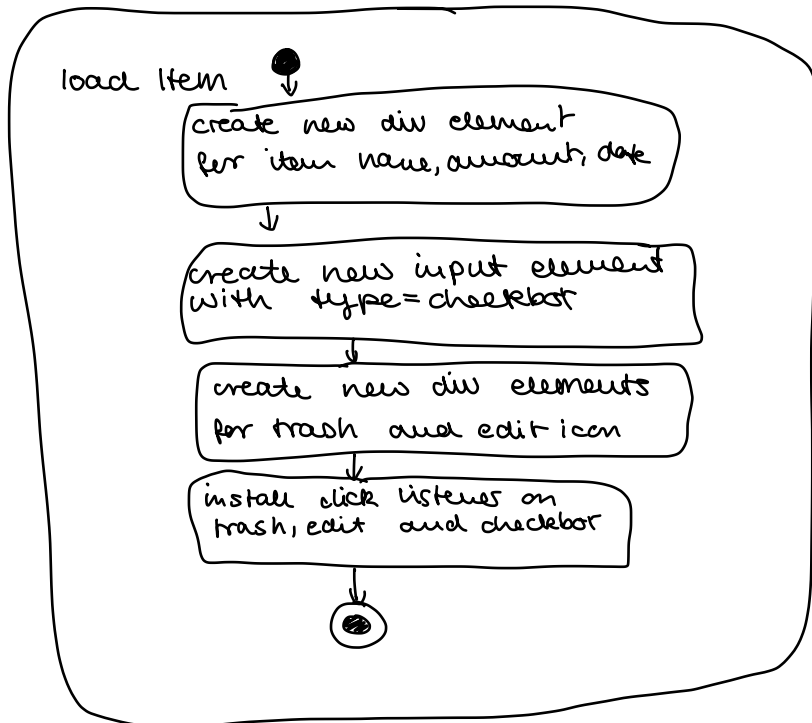 load Item
create new div element
for item name, amount, date
create new input element
with type=checkbox
create new div elements
for trash and edit icon
install click listener on
trash, edit and checkbox